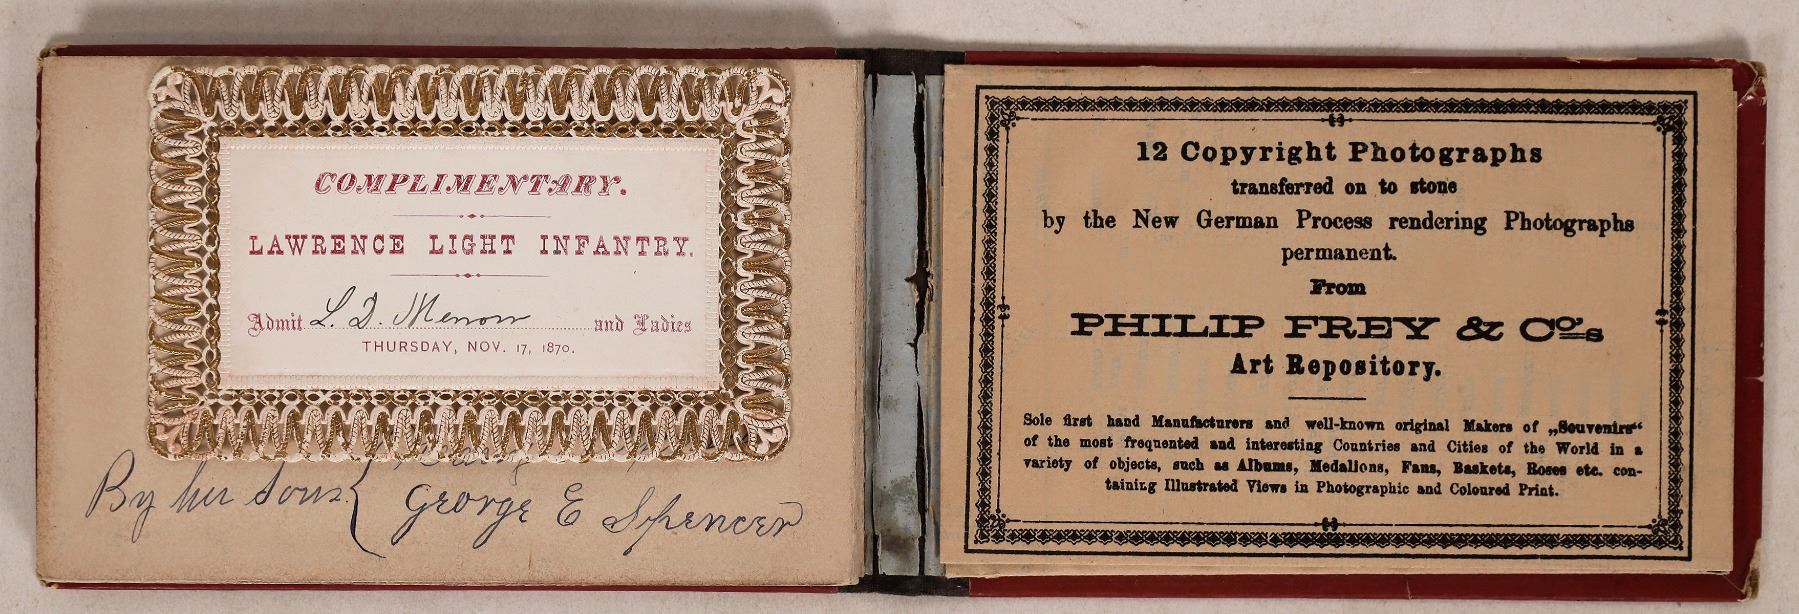 COMPLIMENTARY.
LAWRENCE LIGHT INFANTRY.
Admit L. D. and Ladies
THURSDAY, NOV. 17, 1870.
By her Sons {
George E Spencer
12 Copyright Photographs
transferred on to stone
by the New German Process rendering Photographs
permanent.
From
PHILIP FREY & Co's
Art Repository.
Sole first hand Manufacturers and well-known original Makers of „Souvenirs“
of the most frequented and interesting Countries and Cities of the World in a
variety of objects, such as Albums, Medallons, Fans, Baskets, Roses etc. con-
taining Illustrated Views in Photographic and Coloured Print.